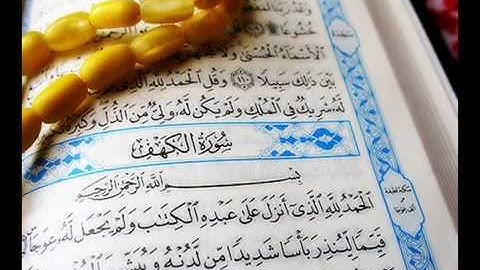 خُشُوعًا
الْأَسْمَاءُ الْحُسْنَىٰ وَلَا
بَيْنَ ذَٰلِكَ سَبِيلًا ١١٠ وَقُلِ الْحَمْدُ لِلَّهِ الَّذِي
لَّهُ شَرِيكٌ فِي الْمُلْكِ وَلَمْ يَكُن لَّهُ وَلِيٌّ مِّنَ الذُّلِّ وَكَبِّرْهُ
سُورَةُ الْكَهْفِ
بِسْمِ اللَّهِ الرَّحْمَٰنِ الرَّحِيمِ
الْحَمْدُ لِلَّهِ الَّذِي أَنزَلَ عَلَىٰ عَبْدِهِ الْكِتَٰبَ وَلَمْ يَجْعَل لَّهُ عِوَجَا
قَيِّمًا لِّيُنذِرَ بَأْسًا شَدِيدًا مِّن لَّدُنْهُ وَيُبَشِّرَ